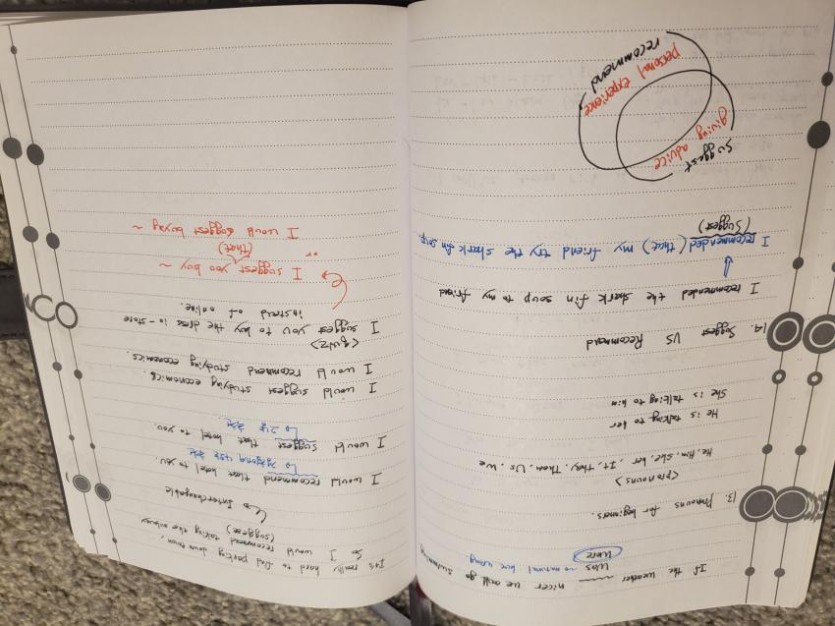 If the weader nicer we will go swimming
Was → natural but wrong
Were
13. Pronouns for beginners.
<pronouns>
He, him, she, her, It, they, Them, Us, We
He is talking to her
She is talking to him
14. Suggest VS Recommend
I recommended the shark fin soup to my friend
I recommended (that) my friend try the shark fin soup.
(Suggest)
Suggest
giving advice
personal experience
recommend
It's really hard to find parking down town,
So I would recommend taking the subway
(suggest)
Interchangeable
I would recommend that hotel to you.
I would suggest that hotel to you.
I would suggest studying economics
I would recommend studying economics.
<quiz>
I suggest you to buy the dress in-store
instead of online.
I suggest you buy ~
(that)
or
I would suggest buying ~